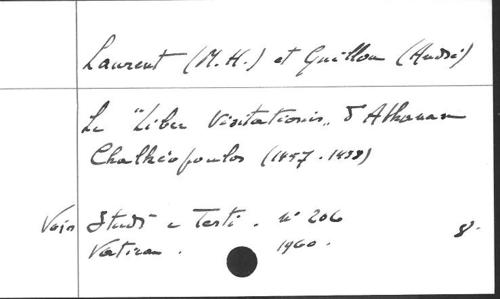 Laurent (M. H.) et Guillou (André)
Le "Liber Visitationis" d'Athanase
Chalkéopoulos (1457-1458)
Voir Studi e Testi. n° 206 8°
Vatican. 1960.